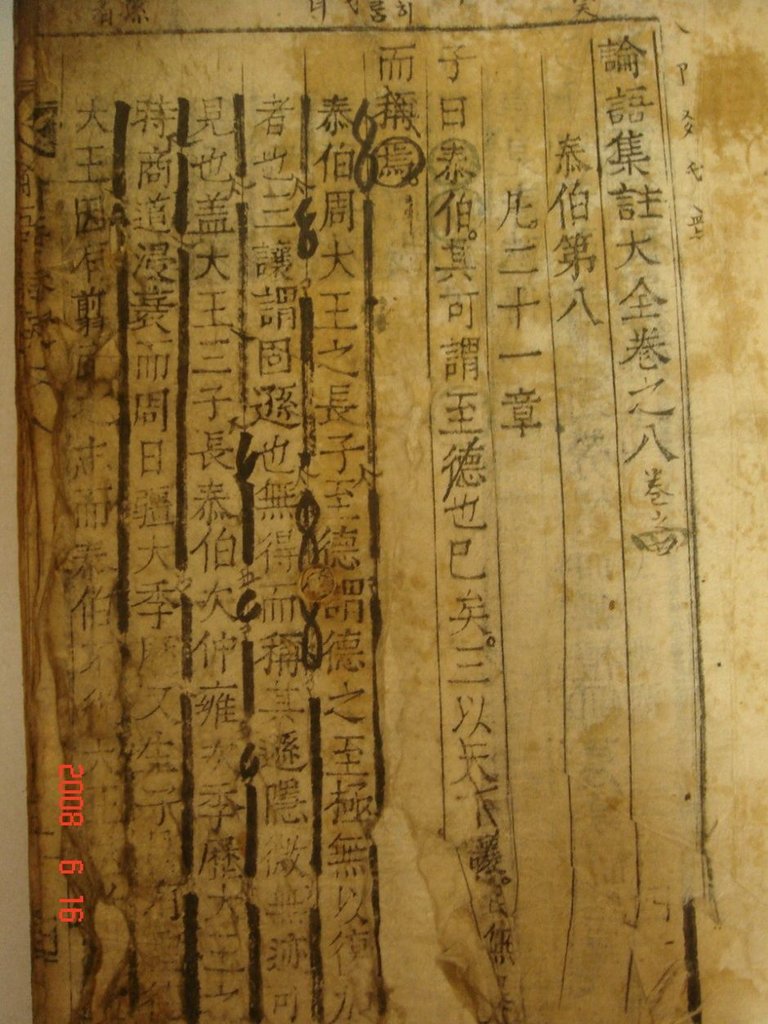 論語集註大全卷之八
泰伯第八
凡二十一章
子曰泰伯。其可謂至德也已矣。三以天下讓。民無
而稱焉。
泰伯周大王之長子至德謂德之至極無以復加
者也三讓謂固遜也無得而稱其遜隱微無迹可
見也盖大王三子長泰伯次仲雍次季歷大王之
時商道浸衰而周日彊大季歷又生子
大王因有翦 志而泰伯不從大王
2008 6 16